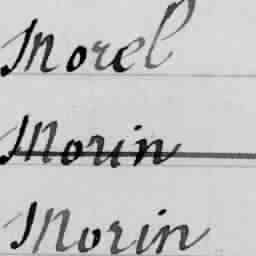 Morel
Morin
Morin